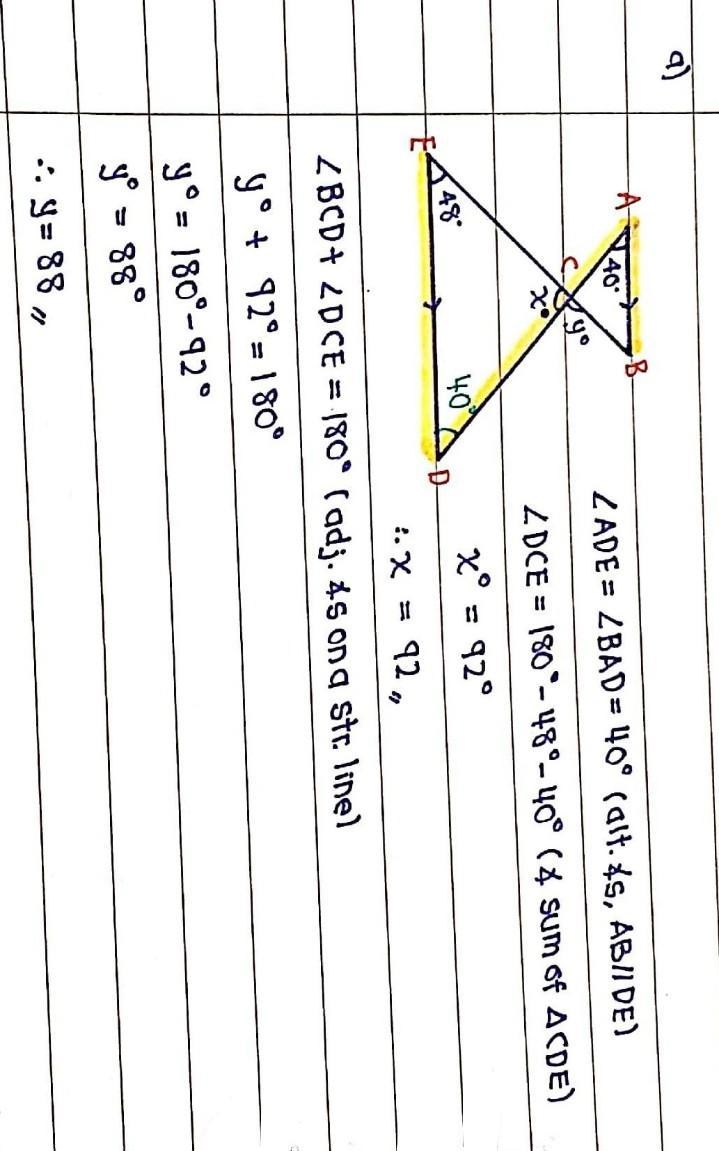 a)
A
B
40°
C
y°
x°
48°
40°
E
D
∠ADE = ∠BAD = 40° (alt. ∡s, AB//DE)
∠DCE = 180° - 48° - 40° (∡ sum of ΔCDE)
x° = 92°
∴ x = 92 〃
∠BCD + ∠DCE = 180° (adj. ∡s on a str. line)
y° + 92° = 180°
y° = 180° - 92°
y° = 88°
∴ y = 88 〃